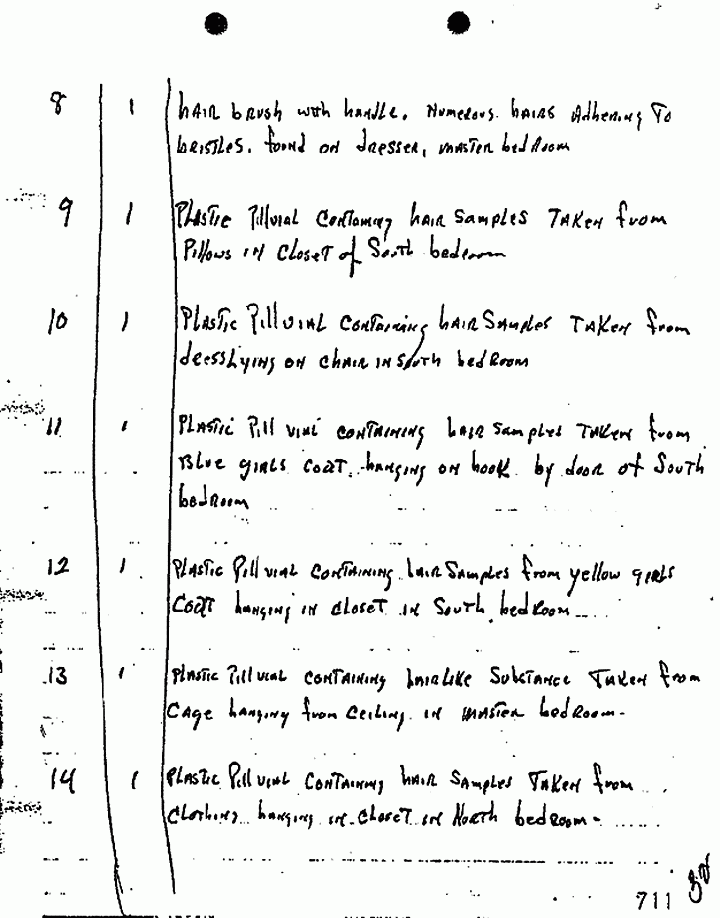 8 1 hAIR brush with handle. Numerous hairs Adhering To
bristles. found on dresser, master bedroom
9 1 Plastic Pillvial Containing hair samples Taken from
Pillows in Closet of South bedroom
10 1 Plastic Pillvial Containing hair Samples Taken from
dress Lying on chair in South bedroom
11 1 Plastic Pill vial containing hair samples Taken from
Blue girls coat hanging on hook by door of South
bedroom
12 1 Plastic Pill vial Containing hair Samples from yellow girls
Coat hanging in closet in South bedroom
13 1 Plastic Pill vial containing hairlike Substance Taken from
Cage hanging from Ceiling in master bedroom.
14 1 Plastic Pill vial Containing hair Samples Taken from
Clothing hanging in Closet in North bedroom.
711